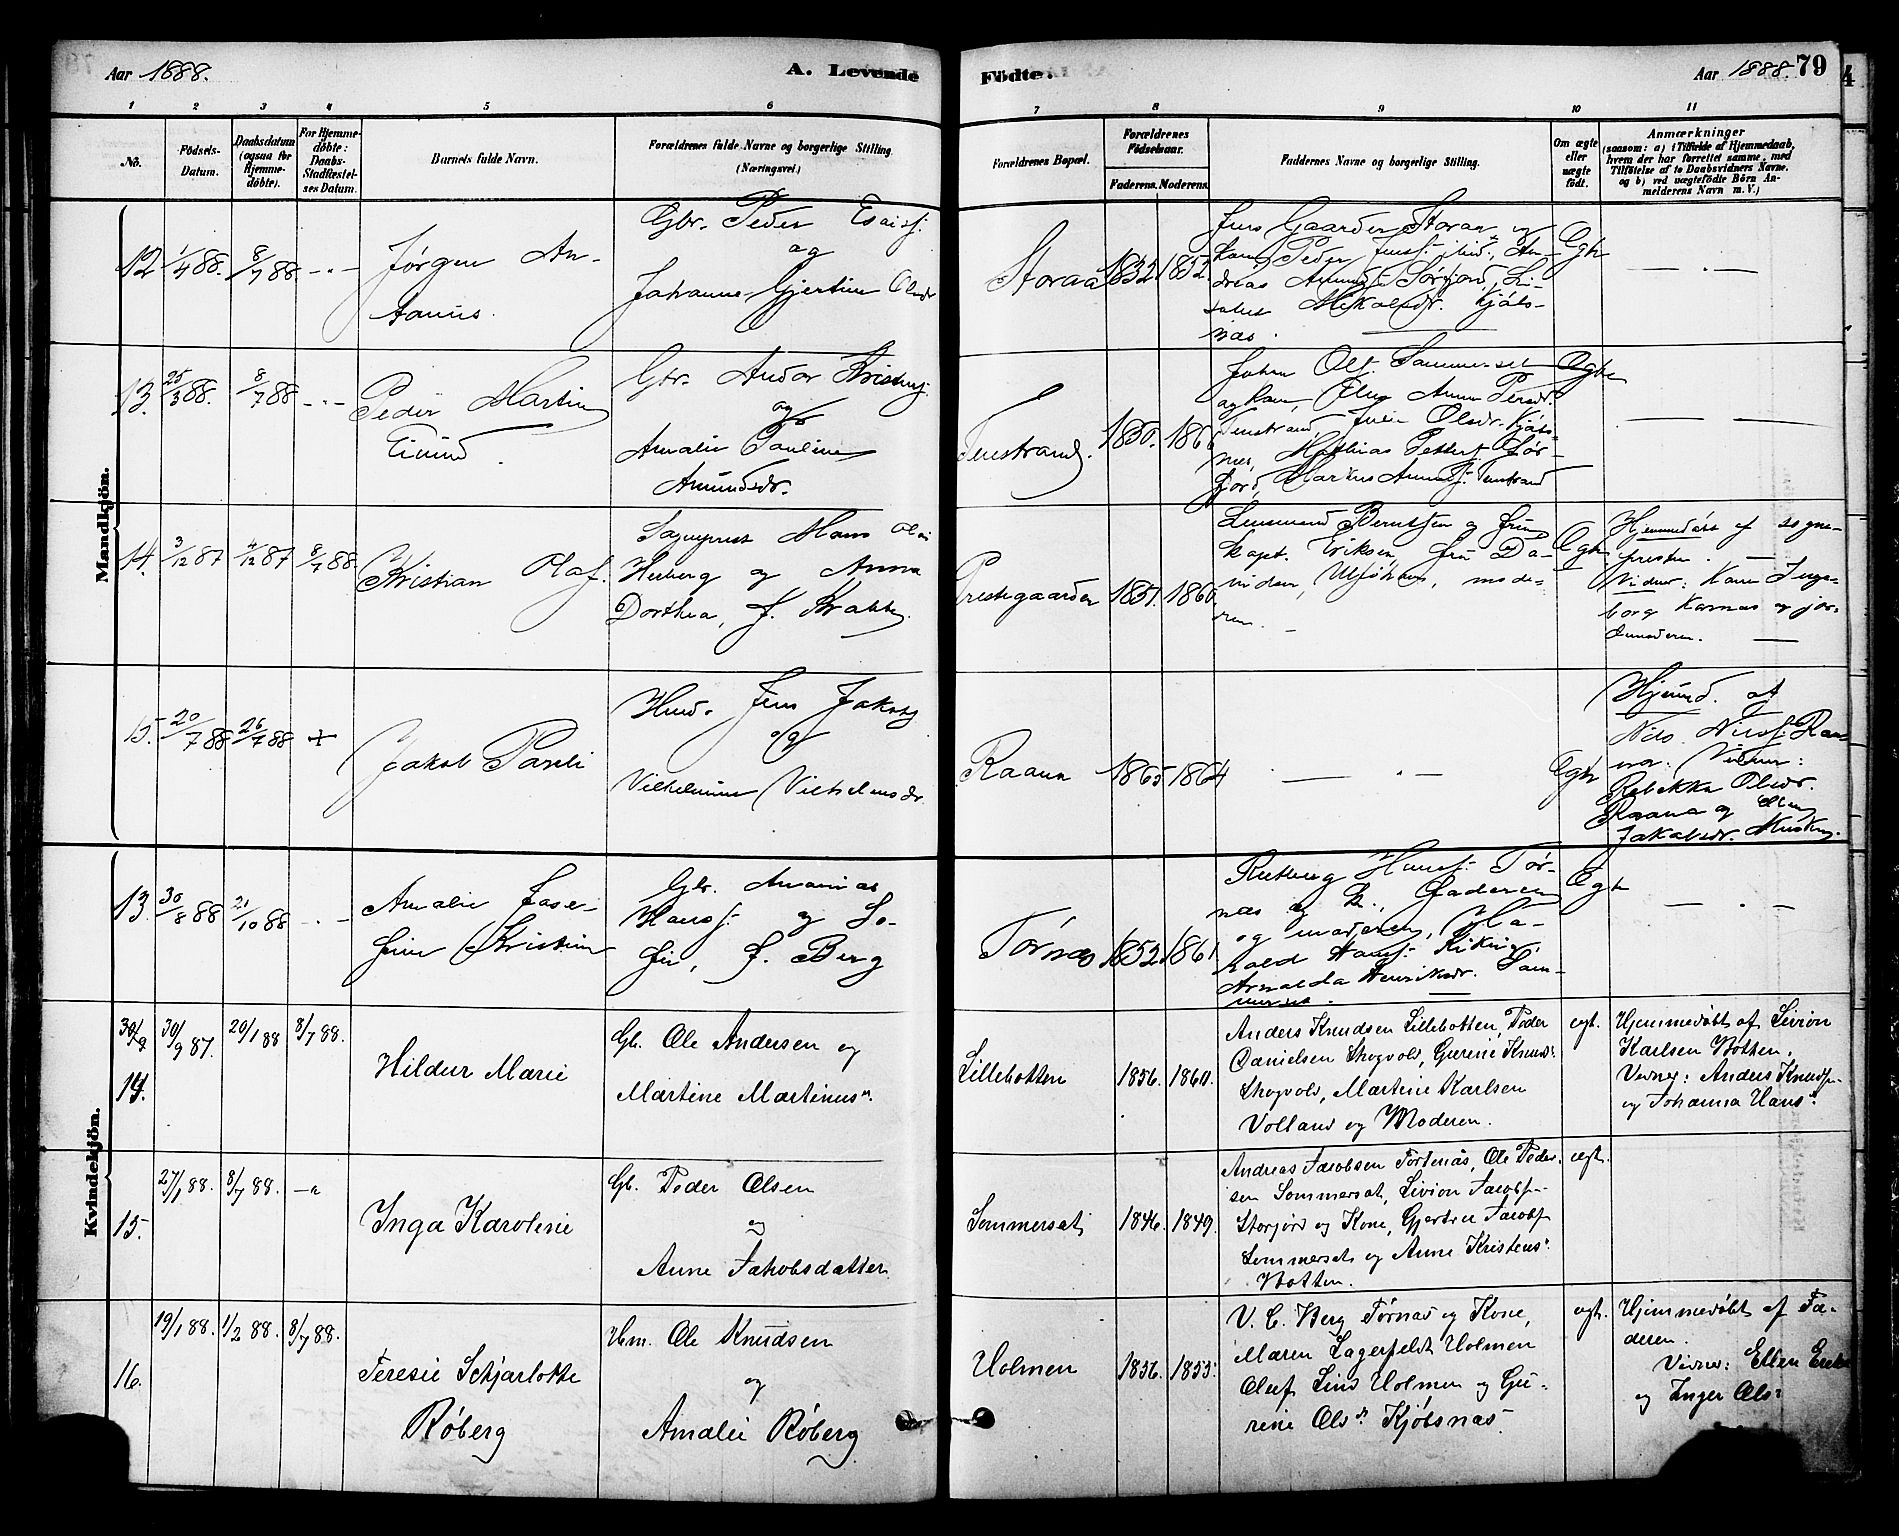 Aar 1888.
A. Levende
Födte.
Aar 1888. 79
1 2 3 4 5 6
7 8 9 10 11
No.
Födsels-
Datum.
Daabsdatum
(ogsaa for
Hjemme-
döbte).
For Hjemme-
döbte:
Daabs-
Stadfæstel-
ses Datum.
Barnets fulde Navn.
Forældrenes fulde Navne og borgerlige Stilling
(Næringsvei.)
Forældrenes Bopæl.
Forældrenes
Födselsaar.
Faderens. Moderens.
Faddernes Navne og borgerlige Stilling.
Om ægte
eller
uægte
födt.
Anmærkninger
(saasom: a) i Tilfælde af Hjemmedaab,
hvem der har forrettet samme, med
Tilföielse af to Daabsvidners Navne,
og b) ved uægtefödte Börn An-
melderens Navn m. V.)
Mandkjön.
12. 1/4 88. 8/7 88 - " -
Jørgen An-
tonius.
Gbr. Peder Esaisf.
og
Johanna Gjertine Olsdr
Storaa 1832. 1852.
Jens Gaarder Storaa og
kone, Peder Jensf. ibid., An-
dreas Amundsf. Sørfjord, Li-
Mikalsdr. Kjøls-
næs.
Egte
13. 25/3 88. 8/7 88 - " -
Peder Martin
Gbr. Andor Kristensf.
og
Amalie Pauline
Amundsdr.
Tenstrand. 1850. 1860
Johan Olsf. Sommerset
og kone, Anna Persdr.
Tenstrand, Julie Olsdr. Kjøls-
næs, Mathias Pettersf. Sør-
fjord, Markus Amundsf. Tenstrand
Egte
14. 3/12 87 4/12 87 8/7 88.
Kristian Olaf.
Sogneprest Hans Olai
Herberg og Anna
Dorthea, f. Krabbe.
Prestegaarden 1851. 1860
Lensmand Berntsen og frue
Kapt. Eriksen, fru Da-
vidsen, Ulfsken, mode-
ren.
Egte
Hjemmedøbt af sogne-
presten.
Vidner: Karen Inge-
borg Karnæs og jor-
demoderen.
15. 20/7 88 26/7 88 +
Jakob Pareli
Hmd. Jens Jakobs
og
Vilhelmine Vilhelmsdr.
Raana 1865 1864
Egte
Hjemd. af
Nils Nilsf. Raa-
na. Vidner:
Rebekka Olsdr.
Raana og Elen
Jakobsdr.
Kvindekjön.
13. 30/8 88 21/10 88 - " -
Amalie Jose-
fine Kristine
Gbr. Ananias
Hansf. og So-
fie, f. Berg
Tørnes 1852 1861
Hansf. Tør-
næs og k., Faderen
og moderen, Ha-
rald Hansf.
Arnolda Henriksdr. Som-
merset.
Egte
14. 30/9 87. 20/1 88 8/7 88.
Hildur Marie
Gb. Ole Andersen og
Martine Martinusdr.
Lillebotten 1856. 1860.
Anders Knudsen Lillebotten, Peder
Danielsen Skogvold, Gurine Knuds.
Skogvold, Martine Karlsen
Volland og Moderen.
egt.
Hjemmedøbt af Livion
Karlsen Botten.
Vidner: Anders Knudsen
og Johanna Hans.
15. 27/1 88. 8/7 88. —
Inga Karoline
Gb. Peder Olsen
og
Anne Jakobsdatter
Sommersat 1846. 1849.
Andreas Jacobsen Tortenås, Ole Peder-
sen Sommersat, Livion Jacobs-
Storjord og Kone, Gjertine Jacobs
Sommersat og Anne Kristens.
Botten.
ægt.
16. 19/1 88. 1/2 88. 8/7 88.
Teresie Schjarlotte
Røberg
Hm. Ole Knudsen
og
Amalie Røberg
Holmen 1856. 1853.
V. C. Berg Tørnæs og Kone,
Maren Lagerfeldt Holmen
Oluf Lind Holmen og Gu-
rine Olsdr. Kjølsnæs.
ægt.
Hjemmedøbt af Fa-
deren.
Vidner: Ellen
og Inger Ols.